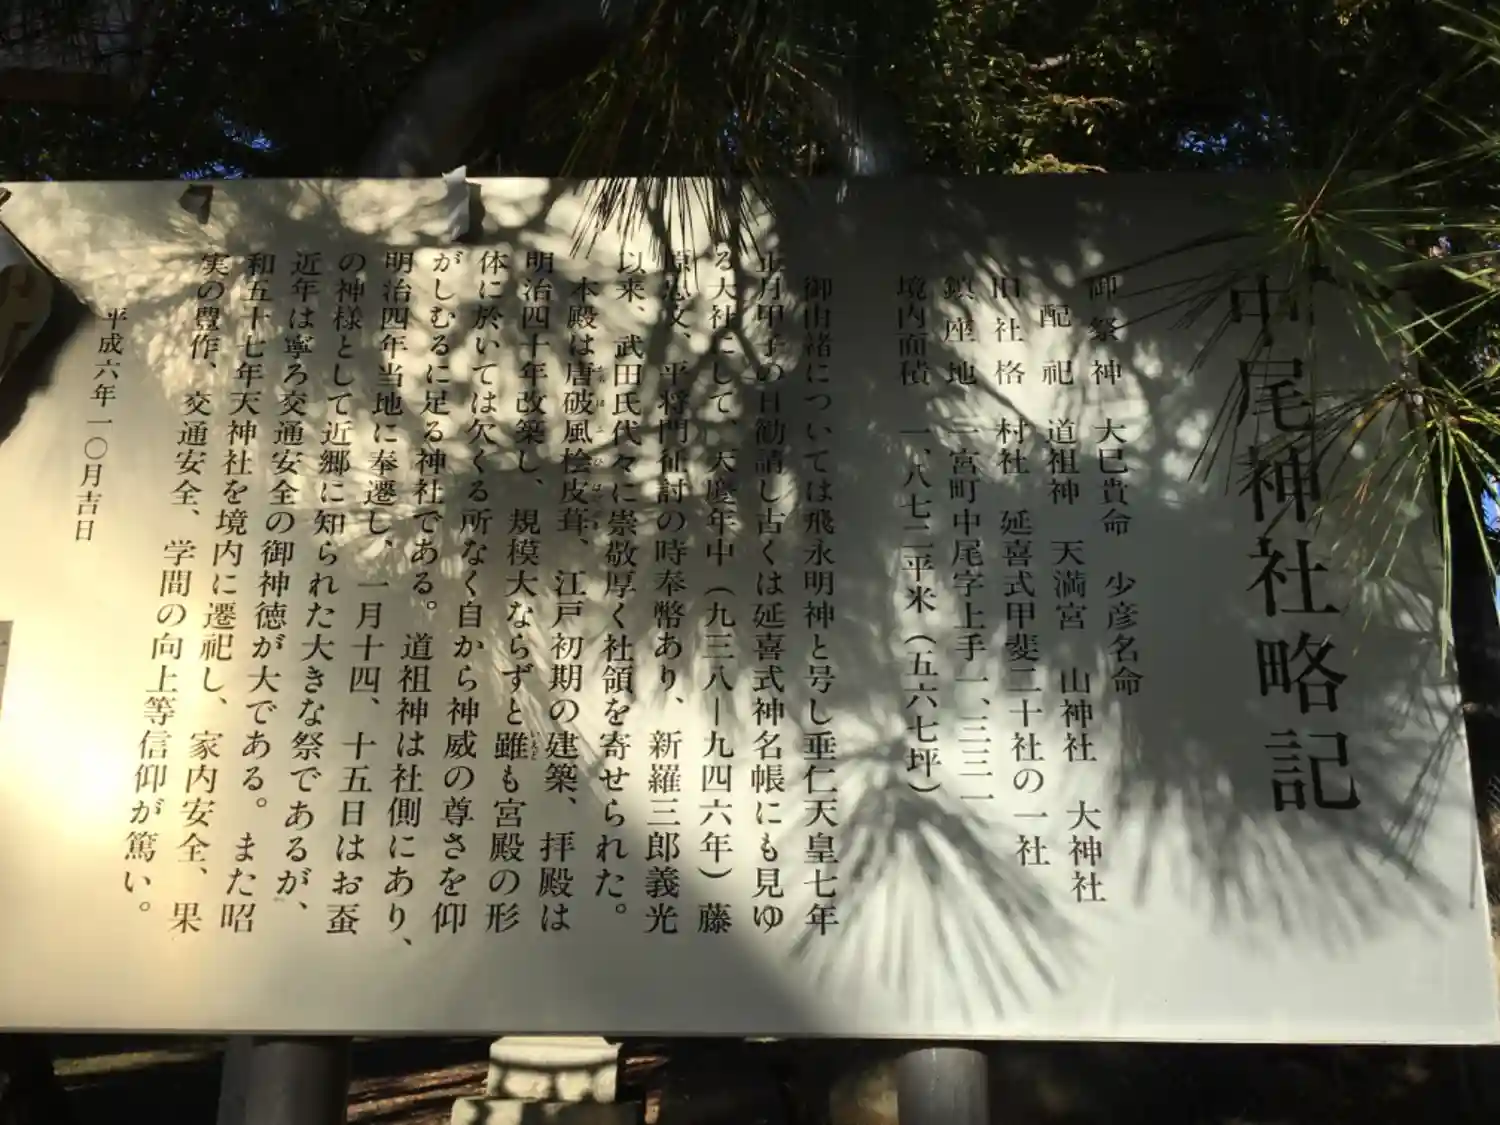 中尾神社略記
御祭神 大巳貴命 少彦名命
配祀 道祖神 天満宮 山神社 大神社
旧社格 村社 延喜式甲斐二十社の一社
鎮座地 一宮町中尾字上手一、三三一
境内面積 一、八七二平米(五六七坪)
御由緒については飛永明神と号し垂仁天皇七年
正月甲子の日勧請し古くは延喜式神名帳にも見ゆ
る大社にして、天慶年中(九三八ー九四六年)藤
原忠文、平将門征討の時奉幣あり、新羅三郎義光
以来、武田氏代々に崇敬厚く社領を寄せられた。
本殿は唐破風桧皮葺、江戸初期の建築、拝殿は
明治四十年改築し、規模大ならずと雖も宮殿の形
体に於いては欠くる所なく自から神威の尊さを仰
がしむるに足る神社である。道祖神は社側にあり、
明治四年当地に奉遷し、一月十四、十五日はお蚕
の神様として近郷に知られた大きな祭であるが、
近年は寧ろ交通安全の御神徳が大である。また昭
和五十七年天神社を境内に遷祀し、家内安全、果
実の豊作、交通安全、学問の向上等信仰が篤い。
平成六年一〇月吉日